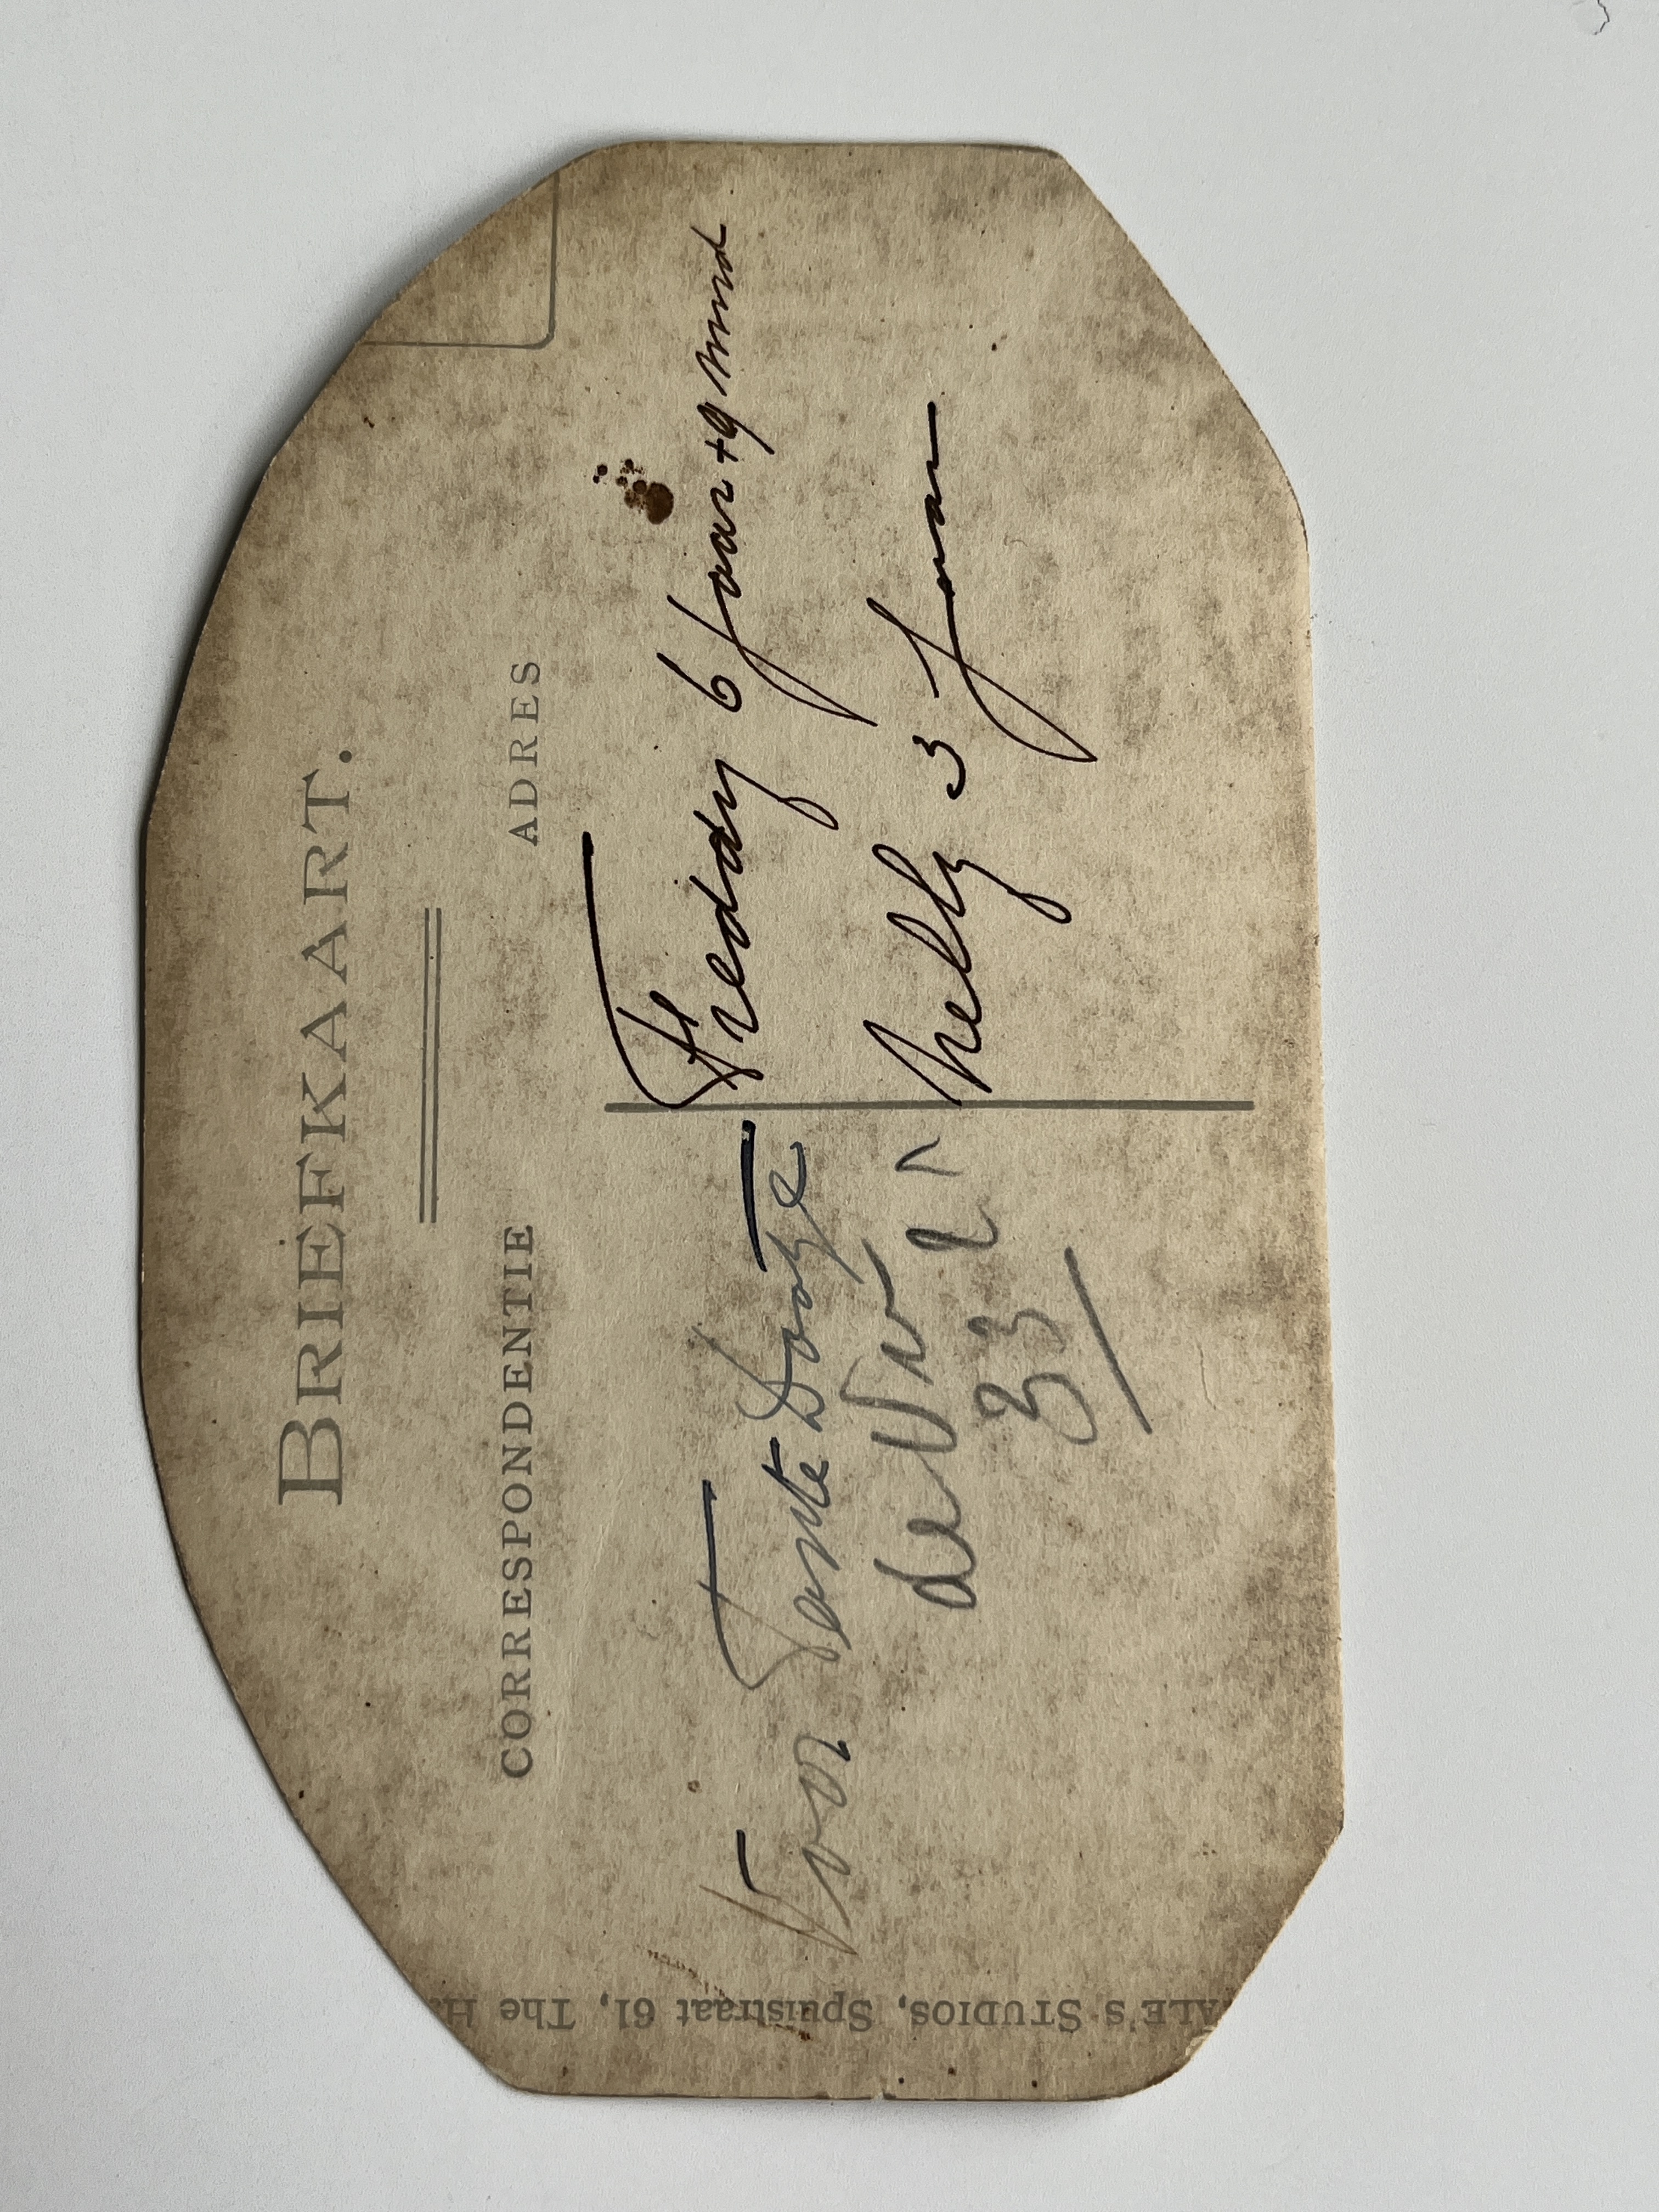 BRIEFKAART.
CORRESPONDENTIE
ADRES
Voor Tante
Freddy 6 jaar + 9 mnd
Nelly 3 jaar
33
ALE'S STUDIOS, Spuistraat 61, The H